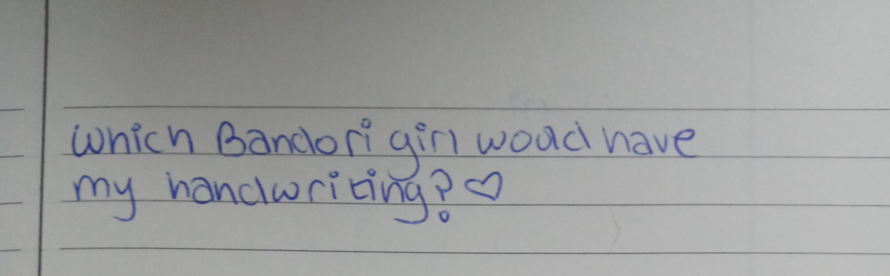 Which Bandori girl would have
my handwriting?♡